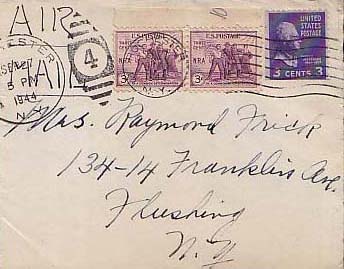 AIR
MAIL
U.S. POSTAGE
U.S. POSTAGE
UNITED
STATES
POSTAGE
3¢
NRA
3¢
NRA
3 CENTS 3
4
5 PM
1944
N.Y.
Mrs. Raymond Frick
134-14 Franklin Ave.
Flushing
N.Y